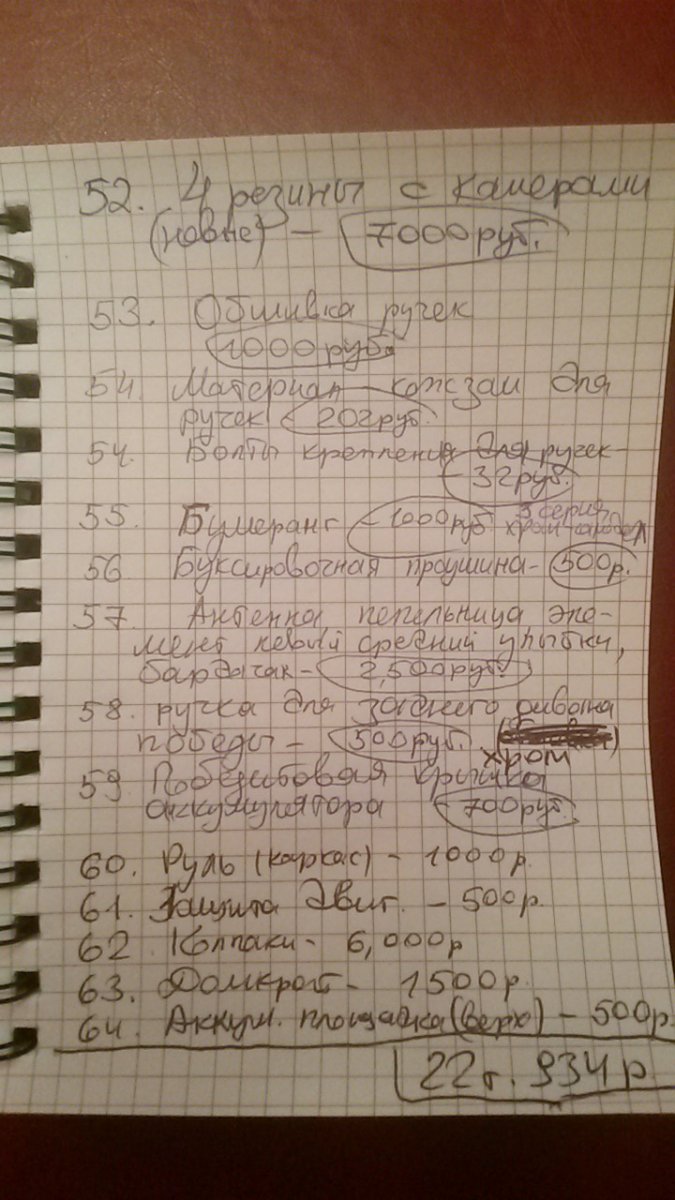 52. 4 резины с камерами
(новые) — 7000 руб.
53. Обшивка ручек
1000 руб.
54. Материал кожзам для
ручек 202 руб.
54. Болты крепления для ручек -
32 руб.
55. Бумеранг - 1000 руб 3 серия
хром
56 Буксировочная проушина - 500 р.
57. Антенна, пепельница, эле-
мент левый средний улыбки,
бардачок - 2,500 руб.
58. ручка для заднего дивана
победы - 500 руб.
хром
59 Победитовая крышка
аккумулятора 700 руб.
60. Руль (каркас) - 1000 р.
61. Защита двиг. - 500 р.
62 Колпаки - 6,000 р
63. Домкрат - 1500 р.
64. Аккум. площадка (верх) - 500 р.
22 т. 934 р.